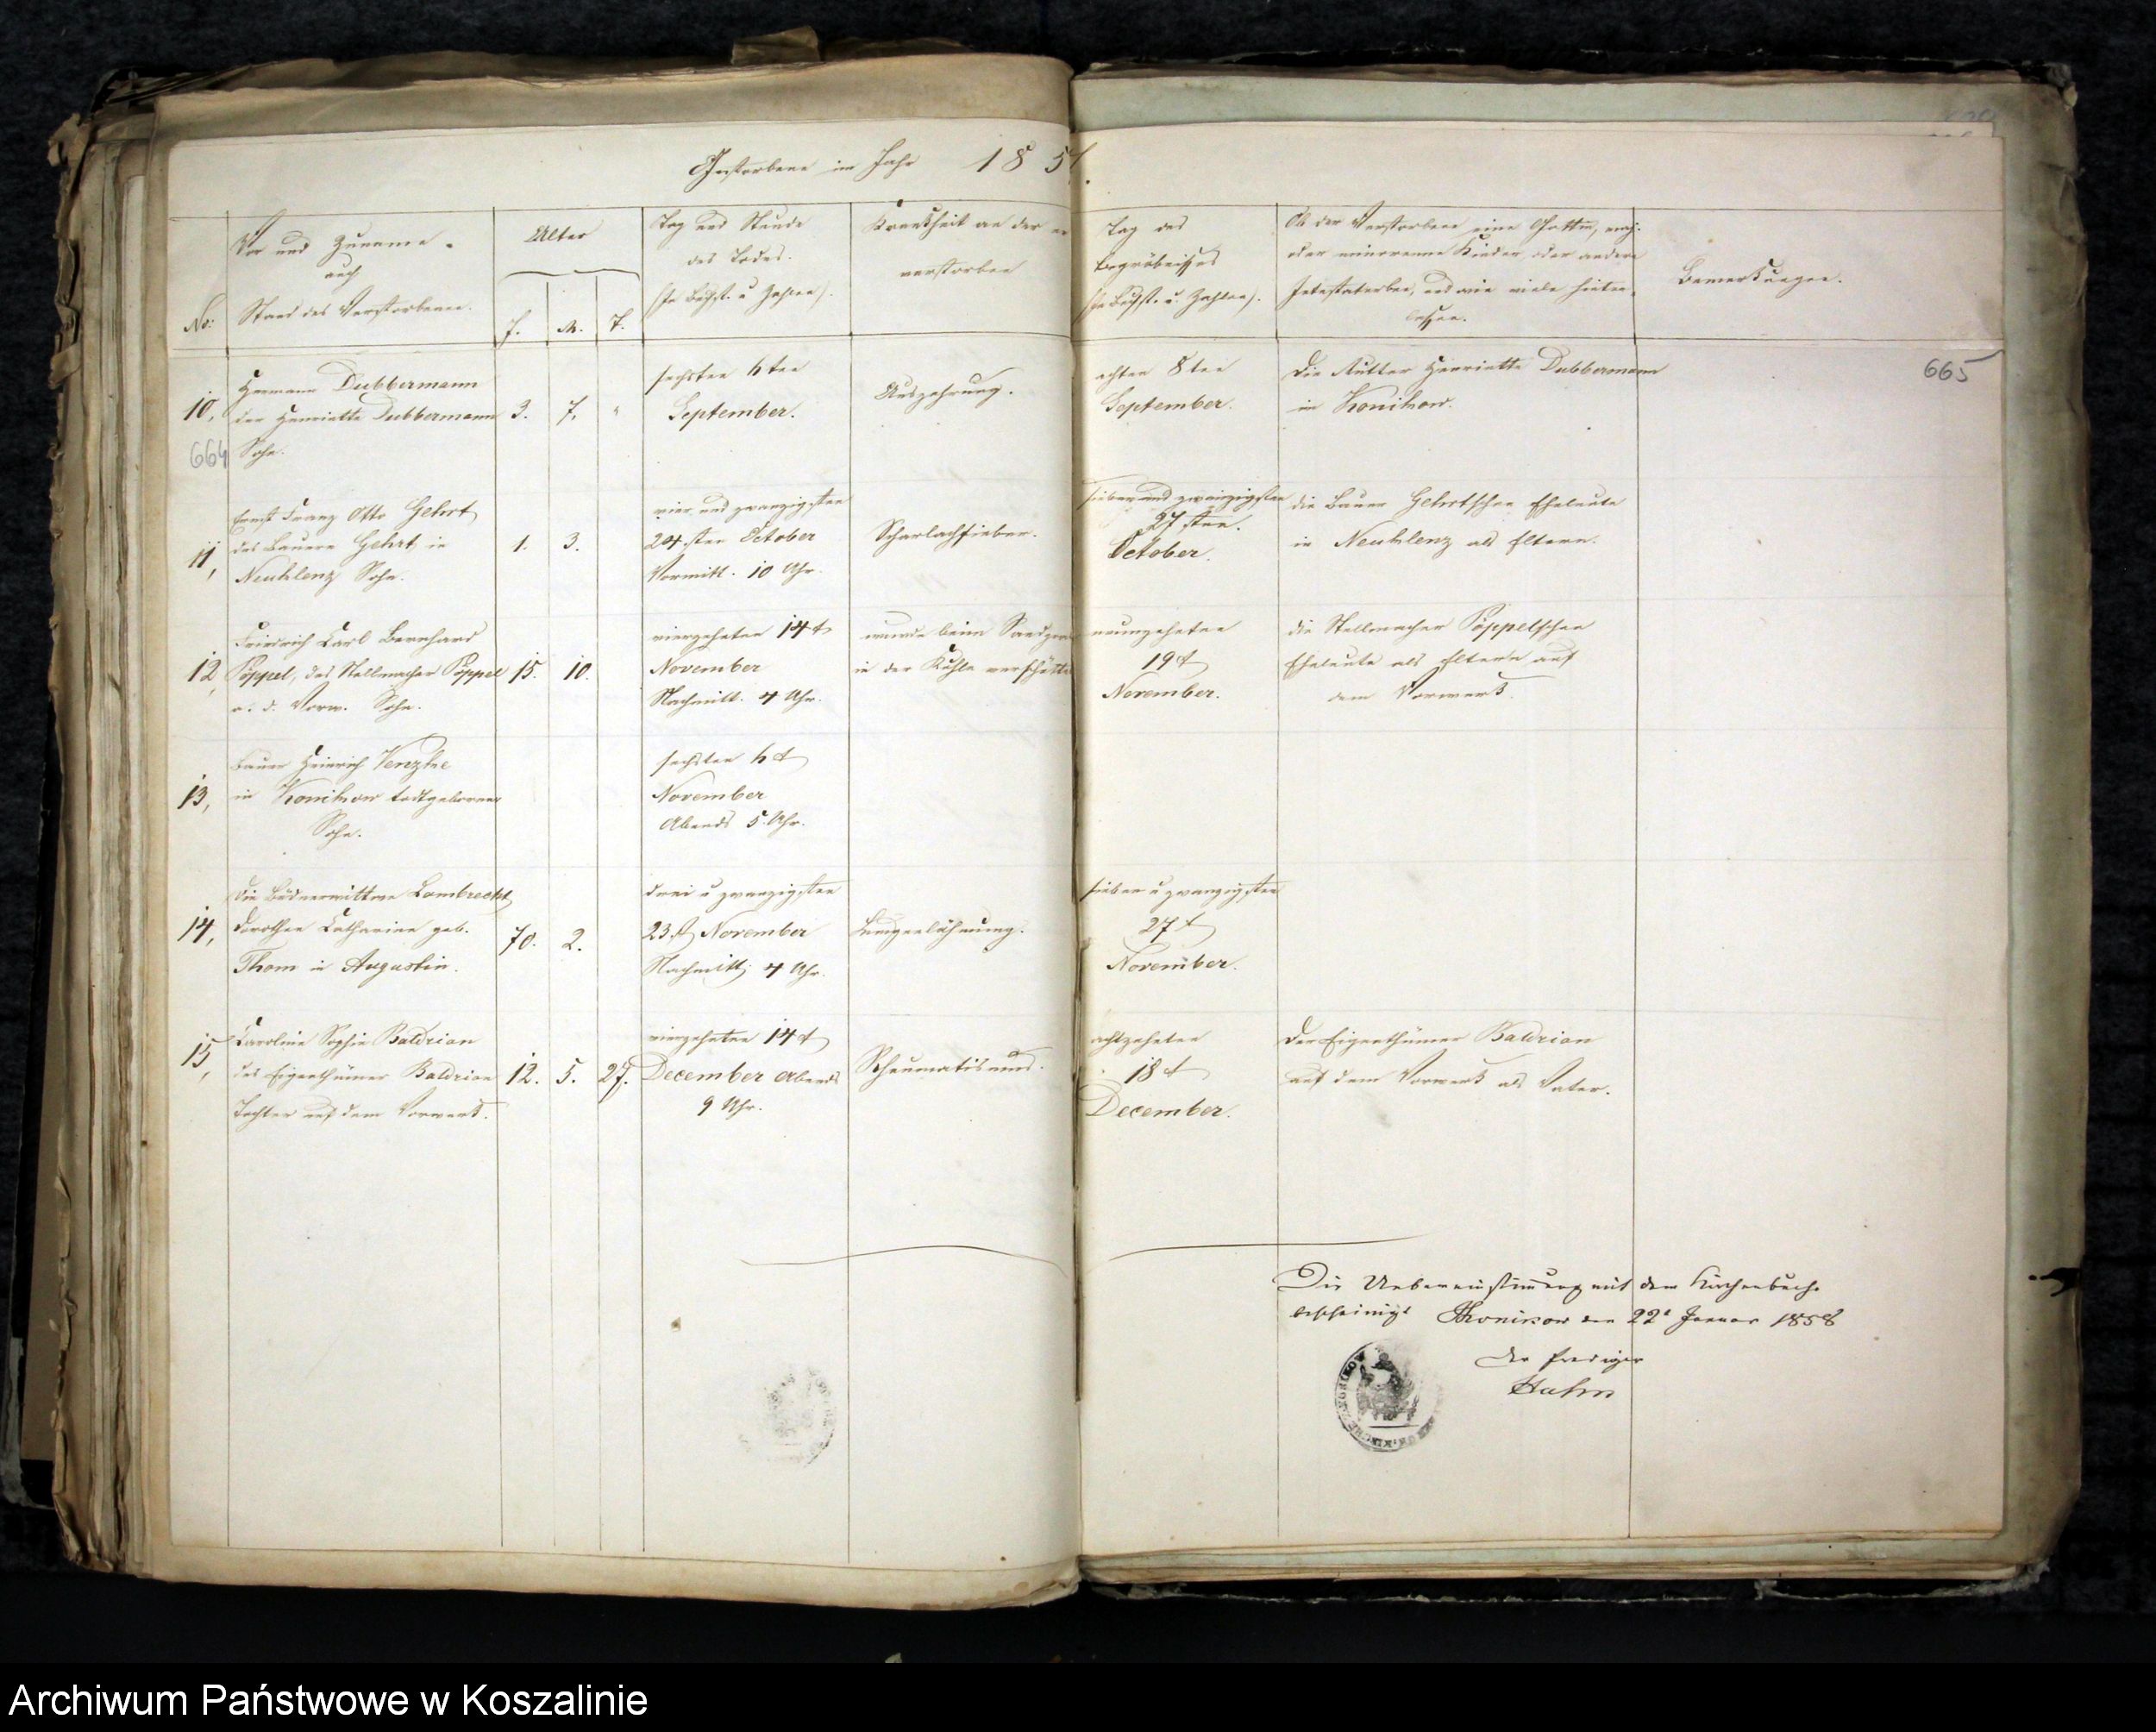 Gestorbene im Jahr 1857.
No:
Vor und Zuname
auch
Stand des Verstorbenen.
Alter
J. M. T.
Tag und Stunde
des Todes.
(in Buchst. u Zahlen).
Krankheit an der er
verstorben
Tag des
Begräbnisses
(in Buchst. u. Zahlen).
Ob der Verstorbene eine Gattin, maj.
oder minorenne Kinder oder andere
Intestaterben, und wie viele hinter-
lassen.
Bemerkungen.
665
10,
664
Hermann Dubbermann
der Henriette Dubbermann
Sohn.
3. 7. "
sechsten 6ten
September.
Auszehrung.
achten 8ten
September.
Die Mutter Henriette Dubbermann
in Konikow.
11,
Ernst Franz Otto Gehrt
des Bauern Gehrt in
Neuklenz Sohn.
1. 3.
vier und zwanzigsten
24sten October
Vormitt. 10 Uhr.
Scharlachfieber.
sieben und zwanzigsten
27sten.
October.
die Bauer Gehrtschen Eheleute
in Neuklenz als Eltern.
12,
Friedrich Carl Bernhard
Pöppel, des Stellmacher Pöppel
a. d. Vorw. Sohn.
15. 10.
vierzehnten 14t
November
Nachmitt. 4 Uhr.
wurde beim
in der Kuhle verschüttet
neunzehnten
19t
November.
die Stellmacher Pöppelschen
Eheleute als Eltern auf
dem Vorwerk.
13,
Bauer Heinrich Venzke
in Konikow todtgeborner
Sohn.
sechsten 6t
November
Abends 5 Uhr.
14,
Die Büdnerwittwe Lambrecht
Dorothea Catharine geb.
Thom in Augustin.
70. 2.
drei u zwanzigsten
23st November
Nachmitt: 4 Uhr.
Lungenlähmung.
sieben u zwanzigsten
27t
November.
15,
Caroline Sophie Baldrian
des Eigenthümer Baldrian
Tochter auf dem Vorwerk.
12. 5. 27.
vierzehnten 14t
December Abends
9 Uhr.
Rheumatismus.
achtzehnten
18t
December.
Der Eigenthümer Baldrian
auf dem Vorwerk als Vater.
Die Uebereinstimmung mit dem Kirchenbuche
bescheinigt Konikow den 22t Januar 1858
Der Prediger
Hahn
Archiwum Państwowe w Koszalinie